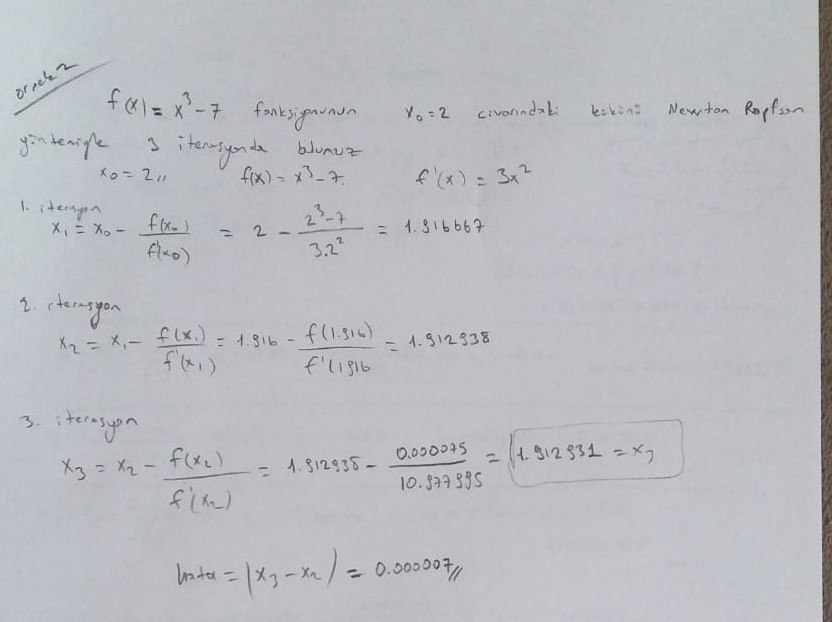 örnek 2
f(x) = x³ - 7 fonksiyonunun x₀ = 2 civarındaki kökünü Newton Rapfson
yöntemiyle 3 iterasyonda bulunuz
x₀ = 2,, f(x) = x³ - 7. f'(x) = 3x²
1. iterasyon
x₁ = x₀ - f(x₀) / f'(x₀) = 2 - (2³ - 7) / (3.2²) = 1.916667
2. iterasyon
x₂ = x₁ - f(x₁) / f'(x₁) = 1.916 - f(1.916) / f'(1916 = 1.912938
3. iterasyon
x₃ = x₂ - f(x₂) / f'(x₂) = 1.912938 - 0.000075 / 10.977995 = 1.912931 = x₃
hata = |x₃ - x₂| = 0.000007//